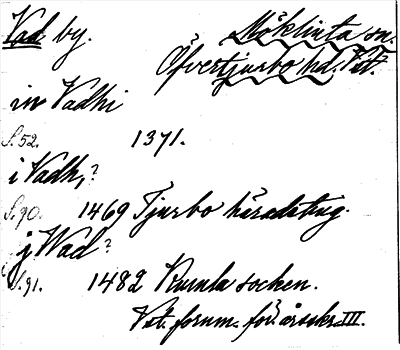 Vad by. Möklinta sn.
Öfvertjurbo hd. Vst.
in Vadhi
S. 52. 1371.
i Vadh,?
S. 90. 1469 Tjurbo häradsting.
j Wad?
S. 91. 1482 Kumla socken.
Vst. fornm. för. årsskr. III.